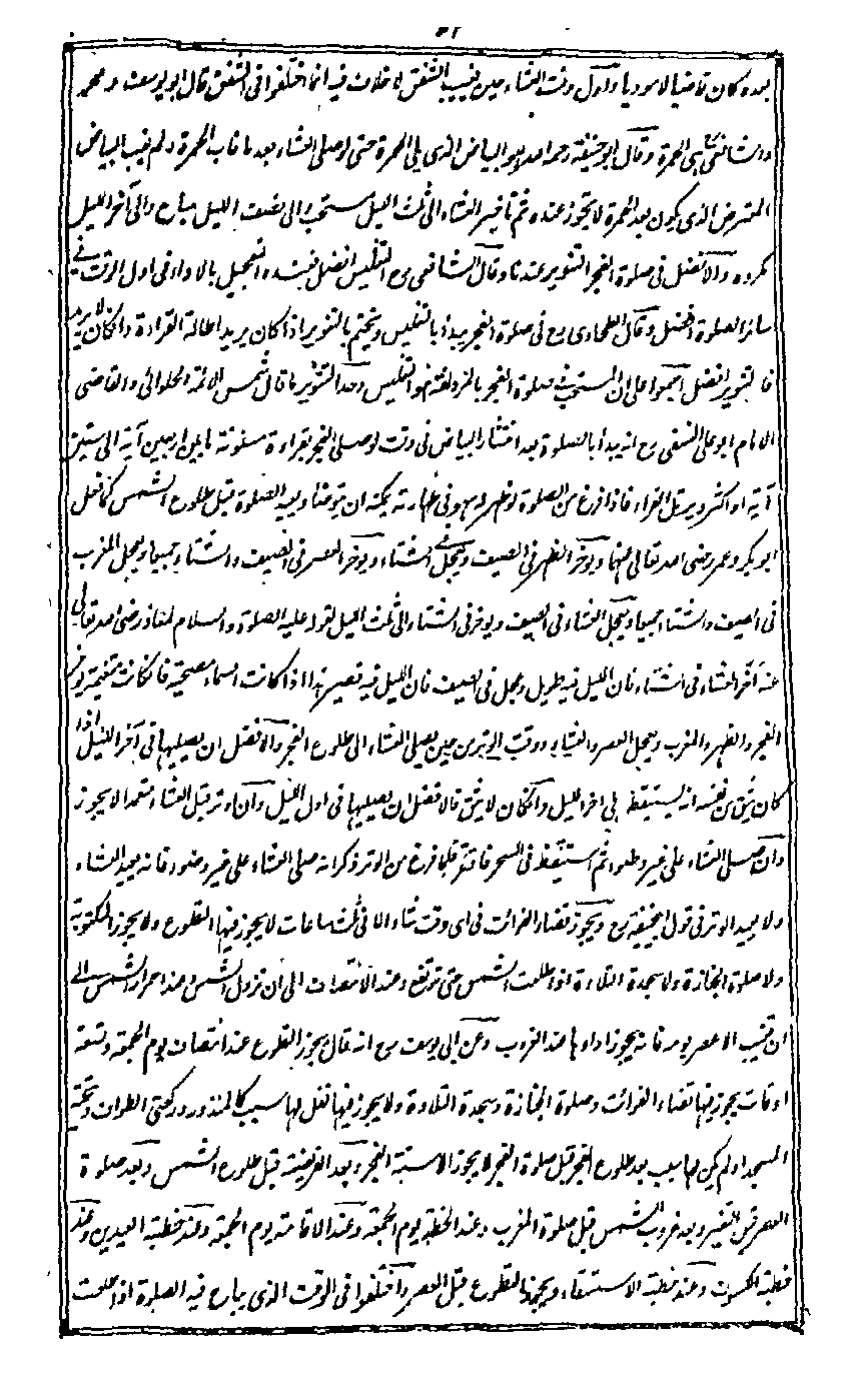 ٣٢
بعده كان قاضيا لا مؤديا واول وقت العشاء حين يغيب الشفق لا خلاف فيه انما اختلفوا فى الشفق قال ابو يوسف و محمد
والشافعى رح هى الحمرة وقال ابو حنيفة رحمه الله هو البياض الذى يلى الحمرة حتى لو صلى العشاء بعد ما غاب الحمرة ولم يغب البياض
المعترض الذى يكون بعد الحمرة لا يجوز عنده ثم تاخير العشاء الى ثلث الليل مستحب والى نصف الليل مباح والى آخر الليل
مكروه والافضل فى صلوة الفجر التنوير عندنا وقال الشافعى رح التغليس افضل فعنده التعجيل بالاداء فى اول الوقت فى
سائر الصلوة افضل وقال الطحاوى رح فى صلوة الفجر يبدأ بالتغليس ويختم بالتنوير اذا كان يريد اطالة القراءة وان كان لا يريد
فالتنوير افضل اجمعوا على ان المستحب فى صلوة الفجر بالمزدلفة هو التغليس وحد التنوير ما قال شمس الائمة الحلوائى والقاضى
الامام ابو على النسفى رح انه يبدأ بالصلوة بعد انتشار البياض فى وقت لو صلى الفجر بقراءة مسنونة ما بين اربعين آية الى ستين
آية او اكثر ويرتل القراءة فاذا فرغ من الصلوة لو ظهر له سهو فى طهارته يمكنه ان يتوضأ ويعيد الصلوة قبل طلوع الشمس كما فعل
ابو بكر وعمر رضى الله تعالى عنهما ويؤخر الظهر فى الصيف ويعجل فى الشتاء ويؤخر العصر فى الصيف والشتاء جميعا ويعجل المغرب
فى الصيف والشتاء جميعا ويعجل العشاء فى الصيف ويؤخر فى الشتاء الى ثلث الليل لقوله عليه الصلوة والسلام لمعاذ رضى الله تعالى
عنه آخر العشاء فى الشتاء فان الليل فيه طويل وعجل فى الصيف فان الليل فيه قصير هذا اذا كانت السماء مصحية فان كانت متغيمة يؤخر
الفجر والظهر والمغرب ويعجل العصر والعشاء ووقت الوتر من حين يصلى العشاء الى طلوع الفجر والافضل ان يصليها فى آخر الليل اذا
كان يثق من نفسه انه يستيقظ فى اخر الليل وان كان لا يثق فالافضل ان يصليها فى اول الليل وان اوتر قبل العشاء متعمدا لا يجوز
وان صلى العشاء على غير وضوء ثم استيقظ فى السحر فاوتر فلما فرغ من الوتر ذكر انه صلى العشاء على غير وضوء فانه يعيد العشاء
ولا يعيد الوتر فى قول ابيحنيفة رح ويجوز قضاء الفوائت فى اى وقت شاء الا فى ثلث ساعات لا يجوز فيها التطوع ولا يجوز المكتوبة
ولا صلوة الجنازة ولا سجدة التلاوة اذا طلعت الشمس حتى ترتفع وعند الانتصاف الى ان تزول الشمس وعند احمرار الشمس الى
ان تغيب الا عصر يومه فانه يجوز اداؤها عند الغروب وعن ابى يوسف رح انه قال يجوز التطوع عند انتصاف يوم الجمعة وتسعة
اوقات يجوز فيها قضاء الفوائت وصلوة الجنازة وسجدة التلاوة ولا يجوز فيها نفل لها سبب كالمنذور وركعتى الطواف وتحية
المسجد او لم يكن لها سبب بعد طلوع الفجر قبل صلوة الفجر لا يجوز الا سنة الفجر وبعد الفريضة قبل طلوع الشمس وبعد صلوة
العصر قبل التغير وبعد غروب الشمس قبل صلوة المغرب وعند الخطبة يوم الجمعة وعند الاقامة يوم الجمعة وعند خطبة العيدين وعند
خطبة الكسوف وعند خطبة الاستسقاء ويجوز التطوع قبل العصر واختلفوا فى الوقت الذى يباح فيه الصلوة اذا طلعت